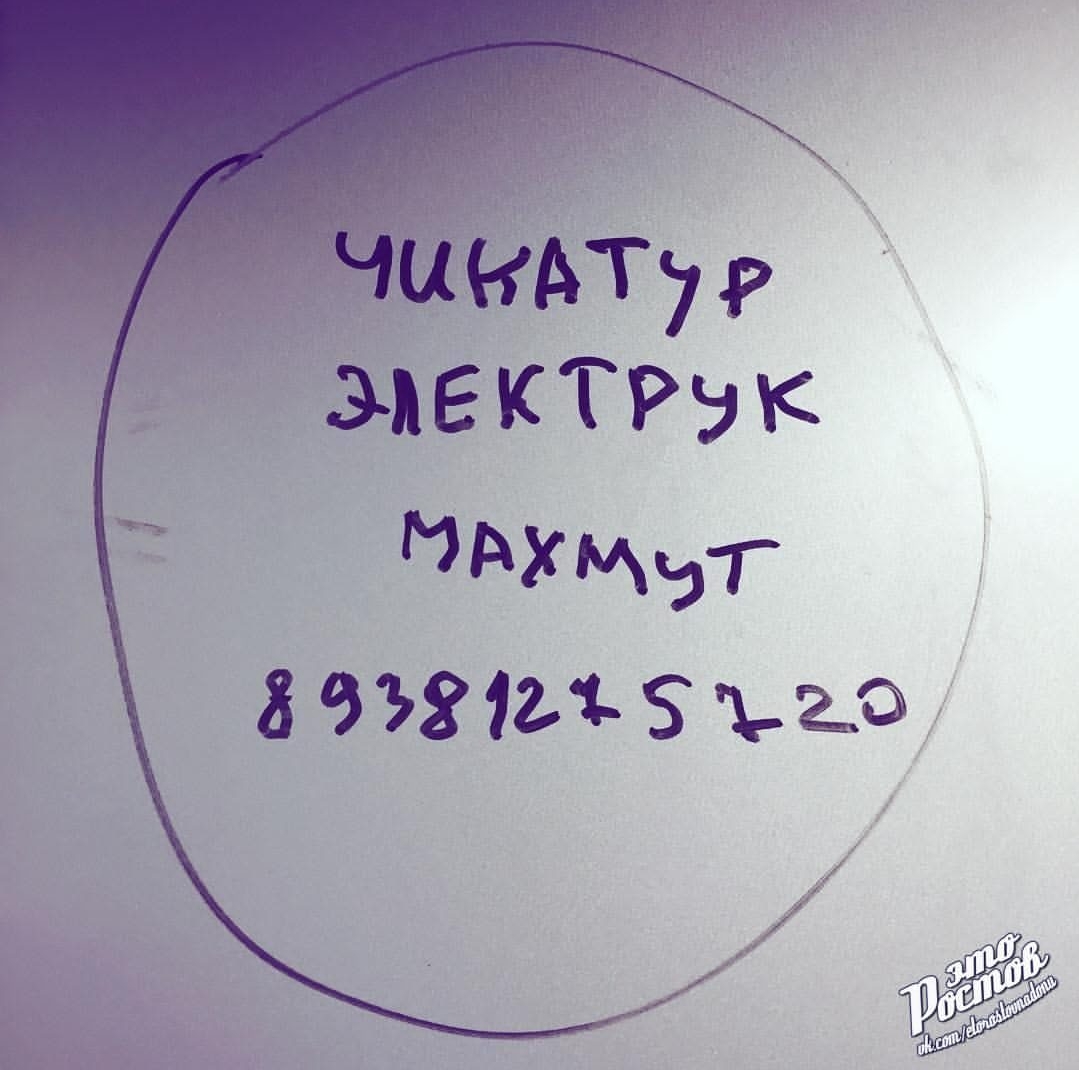 ЧИКАТУР
ЭЛЕКТРУК
МАХМУТ
89381275720
это
Ростов
vk.com/etorostovnadonu